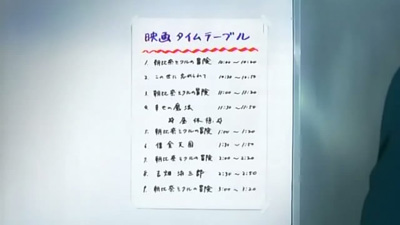 映画タイムテーブル
1. 朝比奈ミクルの冒険 10:00 〜 10:20
2. この世に忘れられて 10:30 〜 10:50
3. 朝比奈ミクルの冒険 11:00 〜 11:20
4. 幸せの魔法 11:30 〜 11:50
昼屋休憩
5. 朝比奈ミクルの冒険 1:00 〜 1:20
6. 借金天国 1:30 〜 1:50
7. 朝比奈ミクルの冒険 2:00 〜 2:20
8. 古畑海三郎 2:30 〜 2:50
9. 朝比奈ミクルの冒険 3:00 〜 3:20